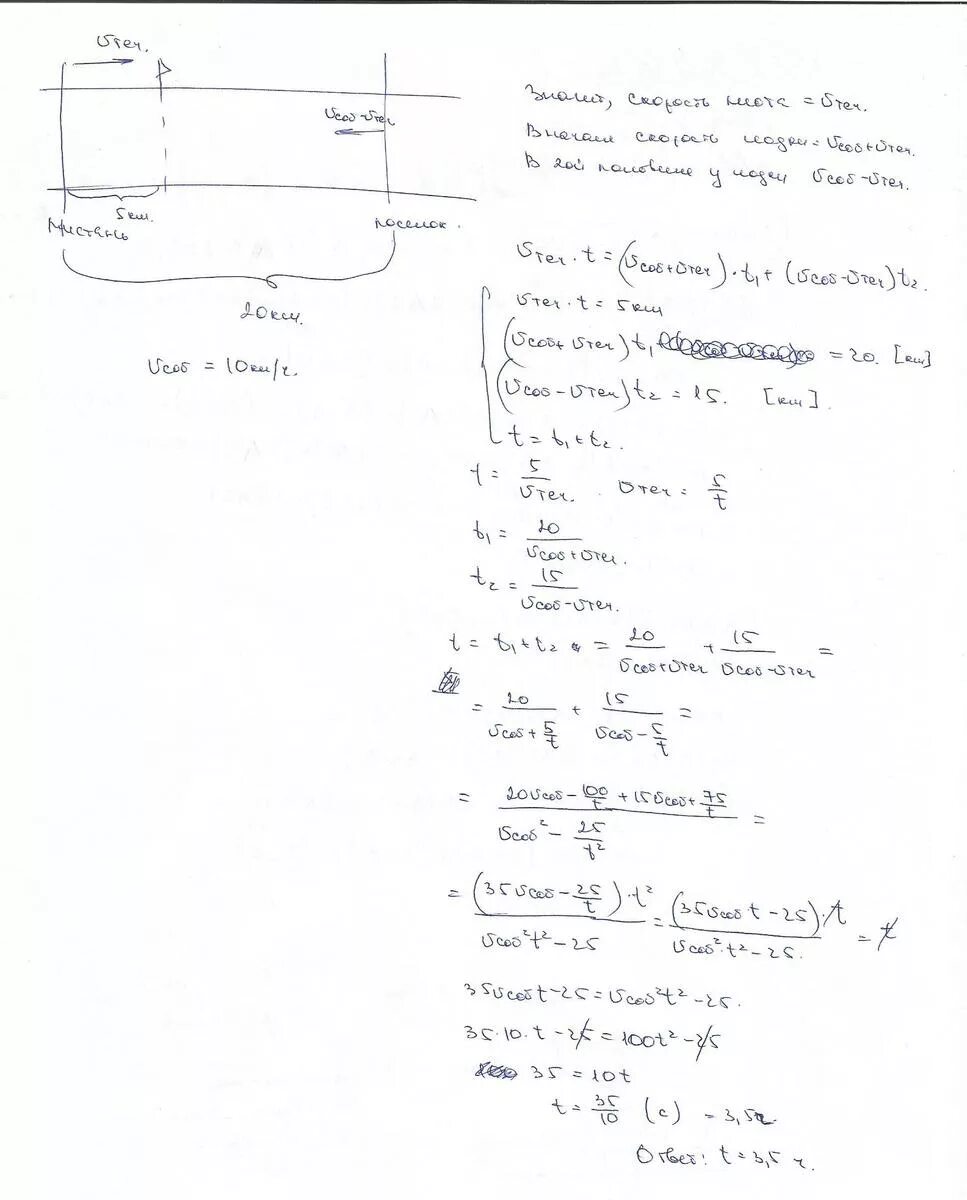 Vтеч.
Vсоб-Vтеч
5 км.
Пристань
поселок.
20 км.
Vсоб = 10 км/ч.
Значит, скорость плота = Vтеч.
Вначале скорость лодки = Vсоб+Vтеч.
В 2ой половине у лодки Vсоб-Vтеч.
Vтеч · t = (Vсоб+Vтеч) · t₁ + (Vсоб-Vтеч) t₂.
Vтеч · t = 5 км
(Vсоб+Vтеч) t₁ = 20. [км]
(Vсоб-Vтеч) t₂ = 15. [км].
t = t₁ + t₂.
t = 5/Vтеч. Vтеч = 5/t
t₁ = 20/(Vсоб+Vтеч).
t₂ = 15/(Vсоб-Vтеч).
t = t₁ + t₂ = 20/(Vсоб+Vтеч) + 15/(Vсоб-Vтеч) =
= 20/(Vсоб + 5/t) + 15/(Vсоб - 5/t) =
= (20Vсоб - 100/t + 15Vсоб + 75/t)/(Vсоб² - 25/t²) =
= (35Vсоб - 25/t) · t²/(Vсоб²t² - 25) = (35Vсоб t - 25) · t/(Vсоб² · t² - 25.) = t
35Vсоб t - 25 = Vсоб² t² - 25.
35·10·t - 25 = 100t² - 25
35 = 10t
t = 35/10 (с) = 3,5ч.
Ответ: t = 3,5 ч.